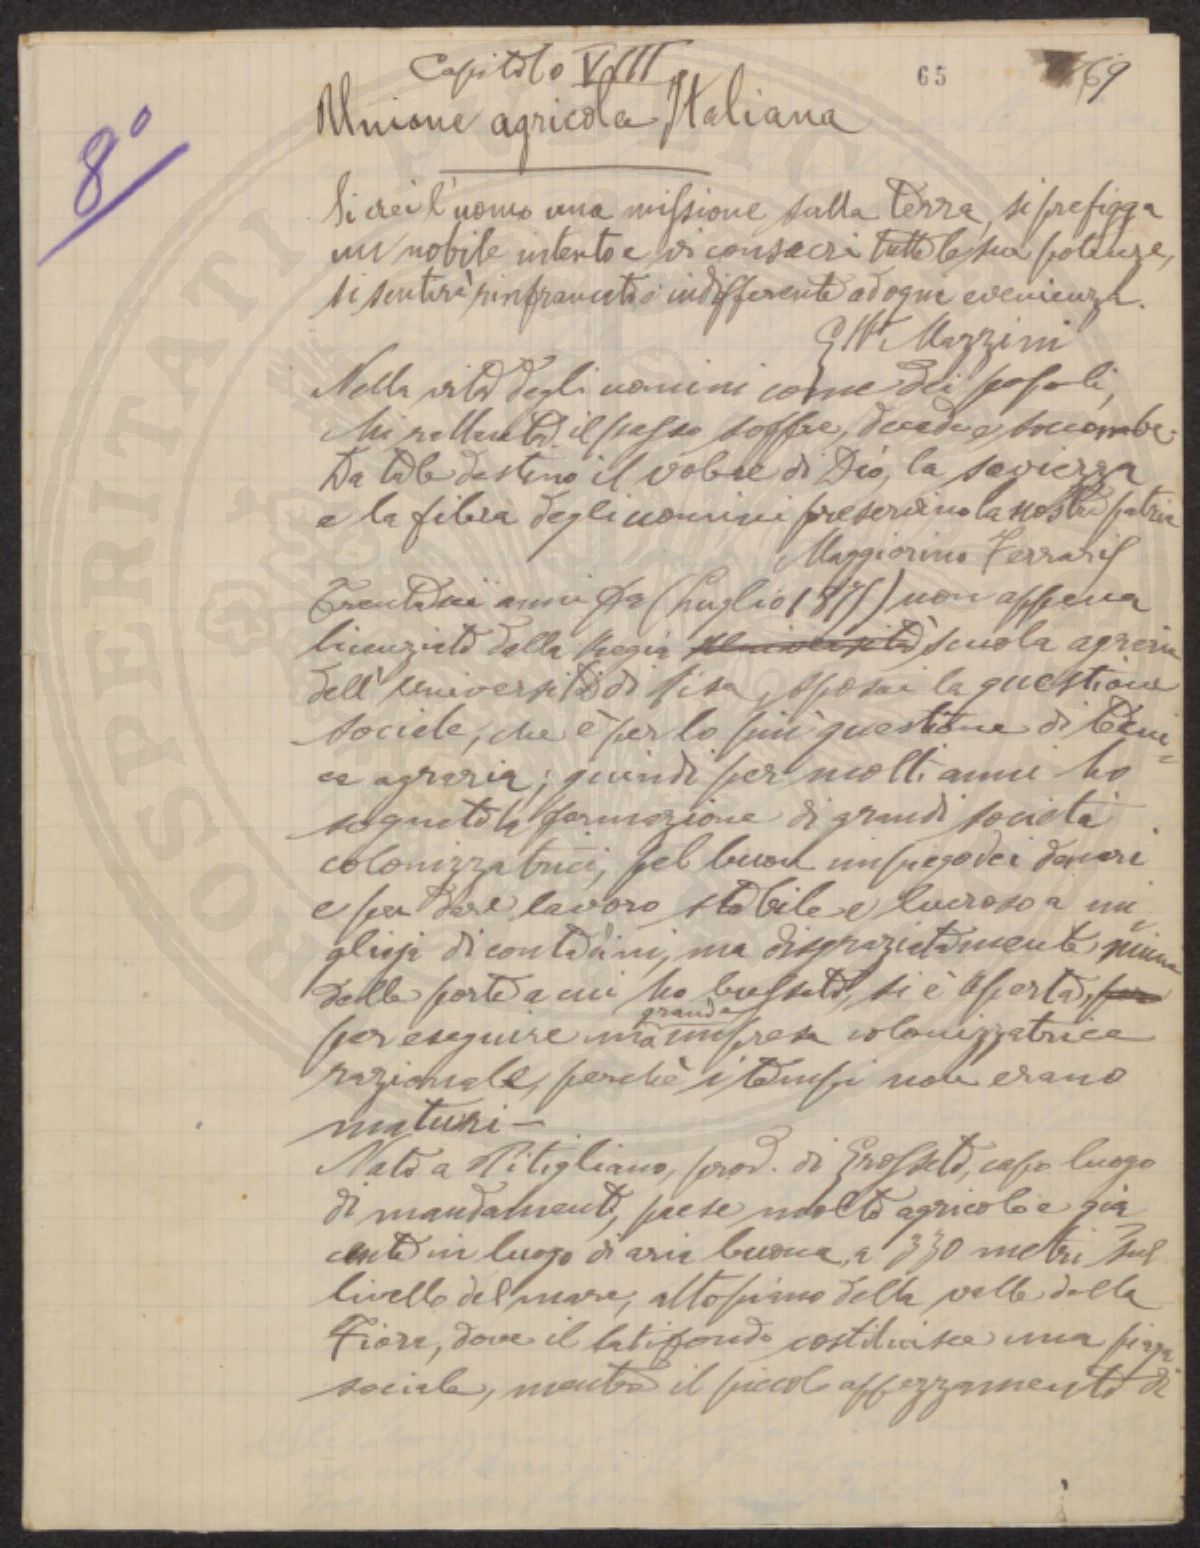 Capitolo VIII
65
69
8°
Unione agricola Italiana
Si crei l'uomo una missione sulla terra, si prefigga
un nobile intento e vi consacri tutte le sue potenze,
si sentirà rinfrancato e indifferente ad ogni evenienza.
Mazzini
Nella vita degli uomini come dei popoli,
chi rallenta il passo soffre, decade e soccombe.
Da tale destino il volere di Dio, la saviezza
e la fibra degli uomini preservino la nostra patria
Maggiorino Ferraris
anni fa (Luglio 1877) non appena
licenziato dalla Regia Università scuola agraria
dell'Università di Pisa, sposai la questione
sociale, che è per lo più questione di tecni=
ca agraria; quindi per molti anni ho
sognato la formazione di grandi società
colonizzatrici, pel buon impiego dei denari
e per dare lavoro stabile e lucroso a mi-
gliaja di contadini, ma disgraziatamente niuna
delle porte a cui ho bussato, si è aperta, per
grande
per eseguire una impresa colonizzatrice
razionale, perchè i tempi non erano
maturi —
Nato a Pitigliano, prov. di Grosseto, capo luogo
di mandamento, paese molto agricolo e gia
cente in luogo di aria buona, a 330 metri sul
livello del mare, altopiano della valle della
Fiora, dove il latifondo costituisce una piaga
sociale, mentre il piccolo appezzamento di